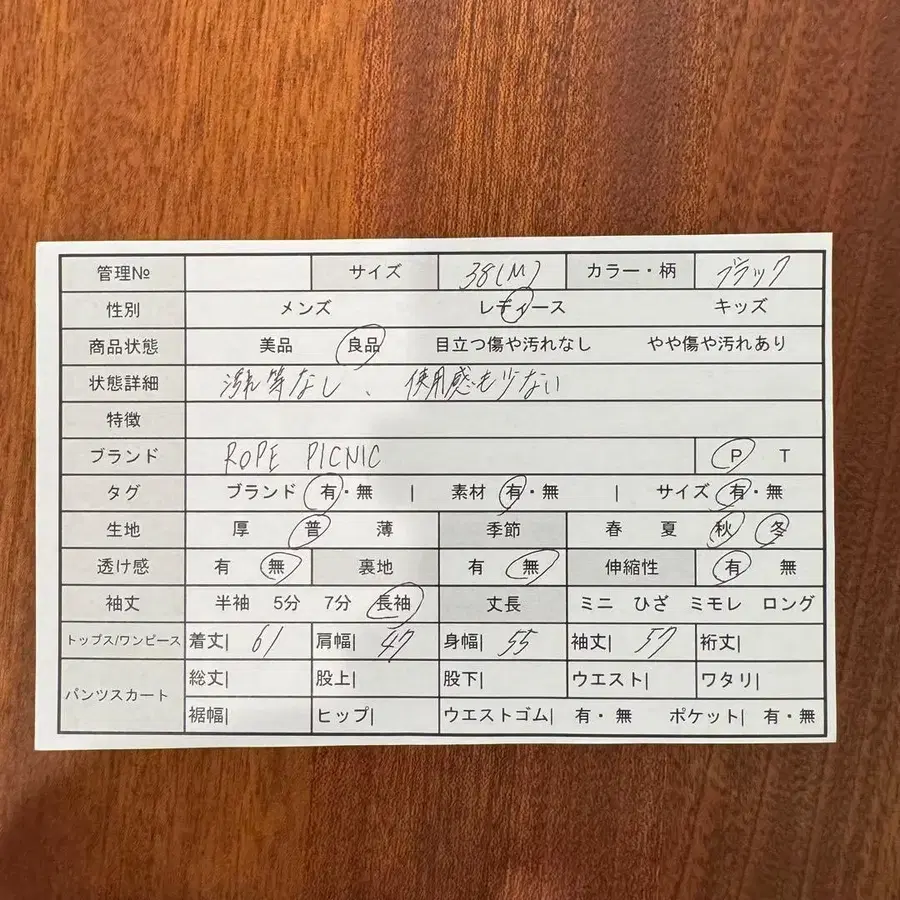 管理№ サイズ 38(M) カラー・柄 ブラック
性別 メンズ レディース キッズ
商品状態 美品 良品 目立つ傷や汚れなし やや傷や汚れあり
状態詳細 汚れ等なし、使用感も少ない
特徴
ブランド ROPE PICNIC P T
タグ ブランド 有・無 | 素材 有・無 | サイズ 有・無
生地 厚 普 薄 季節 春 夏 秋 冬
透け感 有 無 裏地 有 無 伸縮性 有 無
袖丈 半袖 5分 7分 長袖 丈長 ミニ ひざ ミモレ ロング
トップス/ワンピース 着丈| 61 肩幅| 47 身幅| 55 袖丈| 57 裄丈|
パンツスカート 総丈| 股上| 股下| ウエスト| ワタリ|
裾幅| ヒップ| ウエストゴム| 有・無 ポケット| 有・無